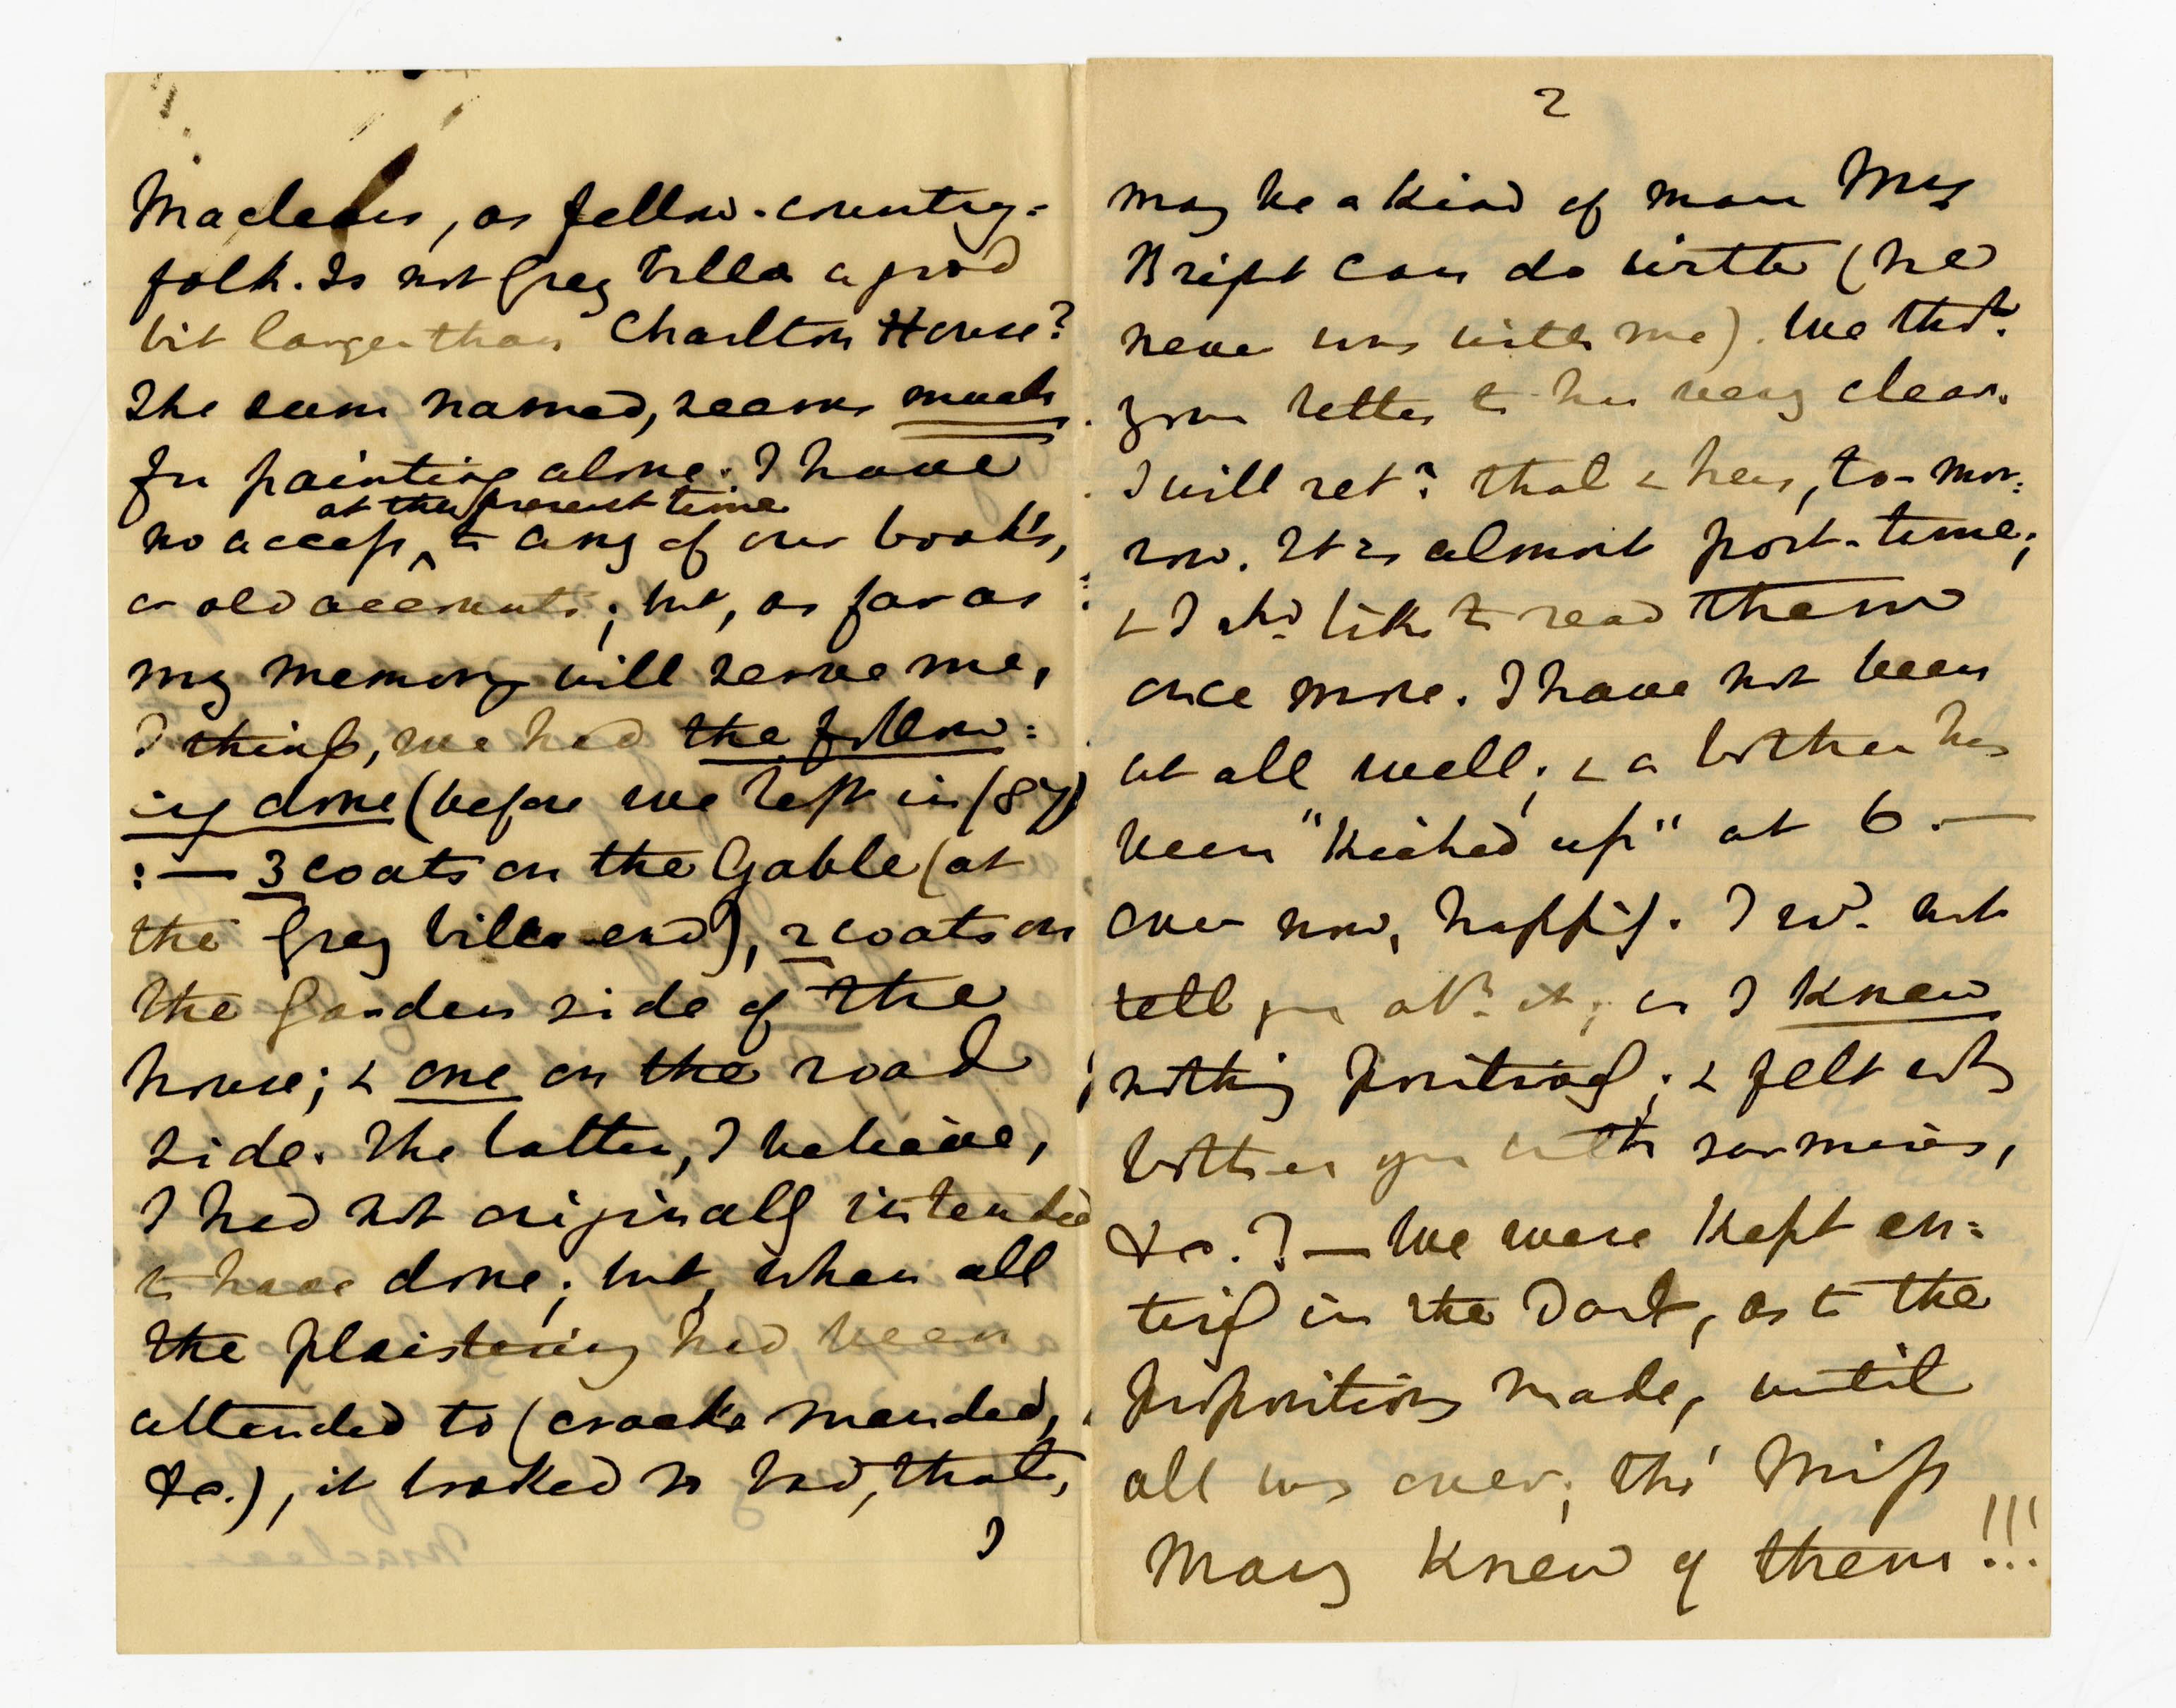 Macleans, as fellow-country-
folk. Is not Grey Villa a good
bit larger than Charlton House?
The sum named, seems much
for painting alone. I have
at the present time
no access, to any of our books,
or old accounts; but, as far as
my memory will serve me,
I think, we had the follow:
ing done (before we left in /87)
:— 3 coats on the Gable (at
the Grey Villa end), 2 coats on
the Garden side of the
house; & one on the road
side. The latter, I believe,
I had not originally intended
to have done; but, when all
the plaistering had been
attended to (cracks mended,
&c.), it looked so bad, that,
I
2
may be a kind of man Mrs
Bright can do with (he
never was with me). We thot.
your letter to her very clear.
I will retn. that & hers, to-mor:
row. It is almost post-time;
& I shd. like to read them
once more. I have not been
at all well; & a bother has
been "kicked up" at 6.—
over now, happily. I wd. not
tell you abt. it; as I knew
nothing positively; & felt why
bother you with surmises,
&c.? — We were kept en:
tirely in the Dark, as to the
propositions made, until
all was over; tho' Miss
Mary knew of them!!!